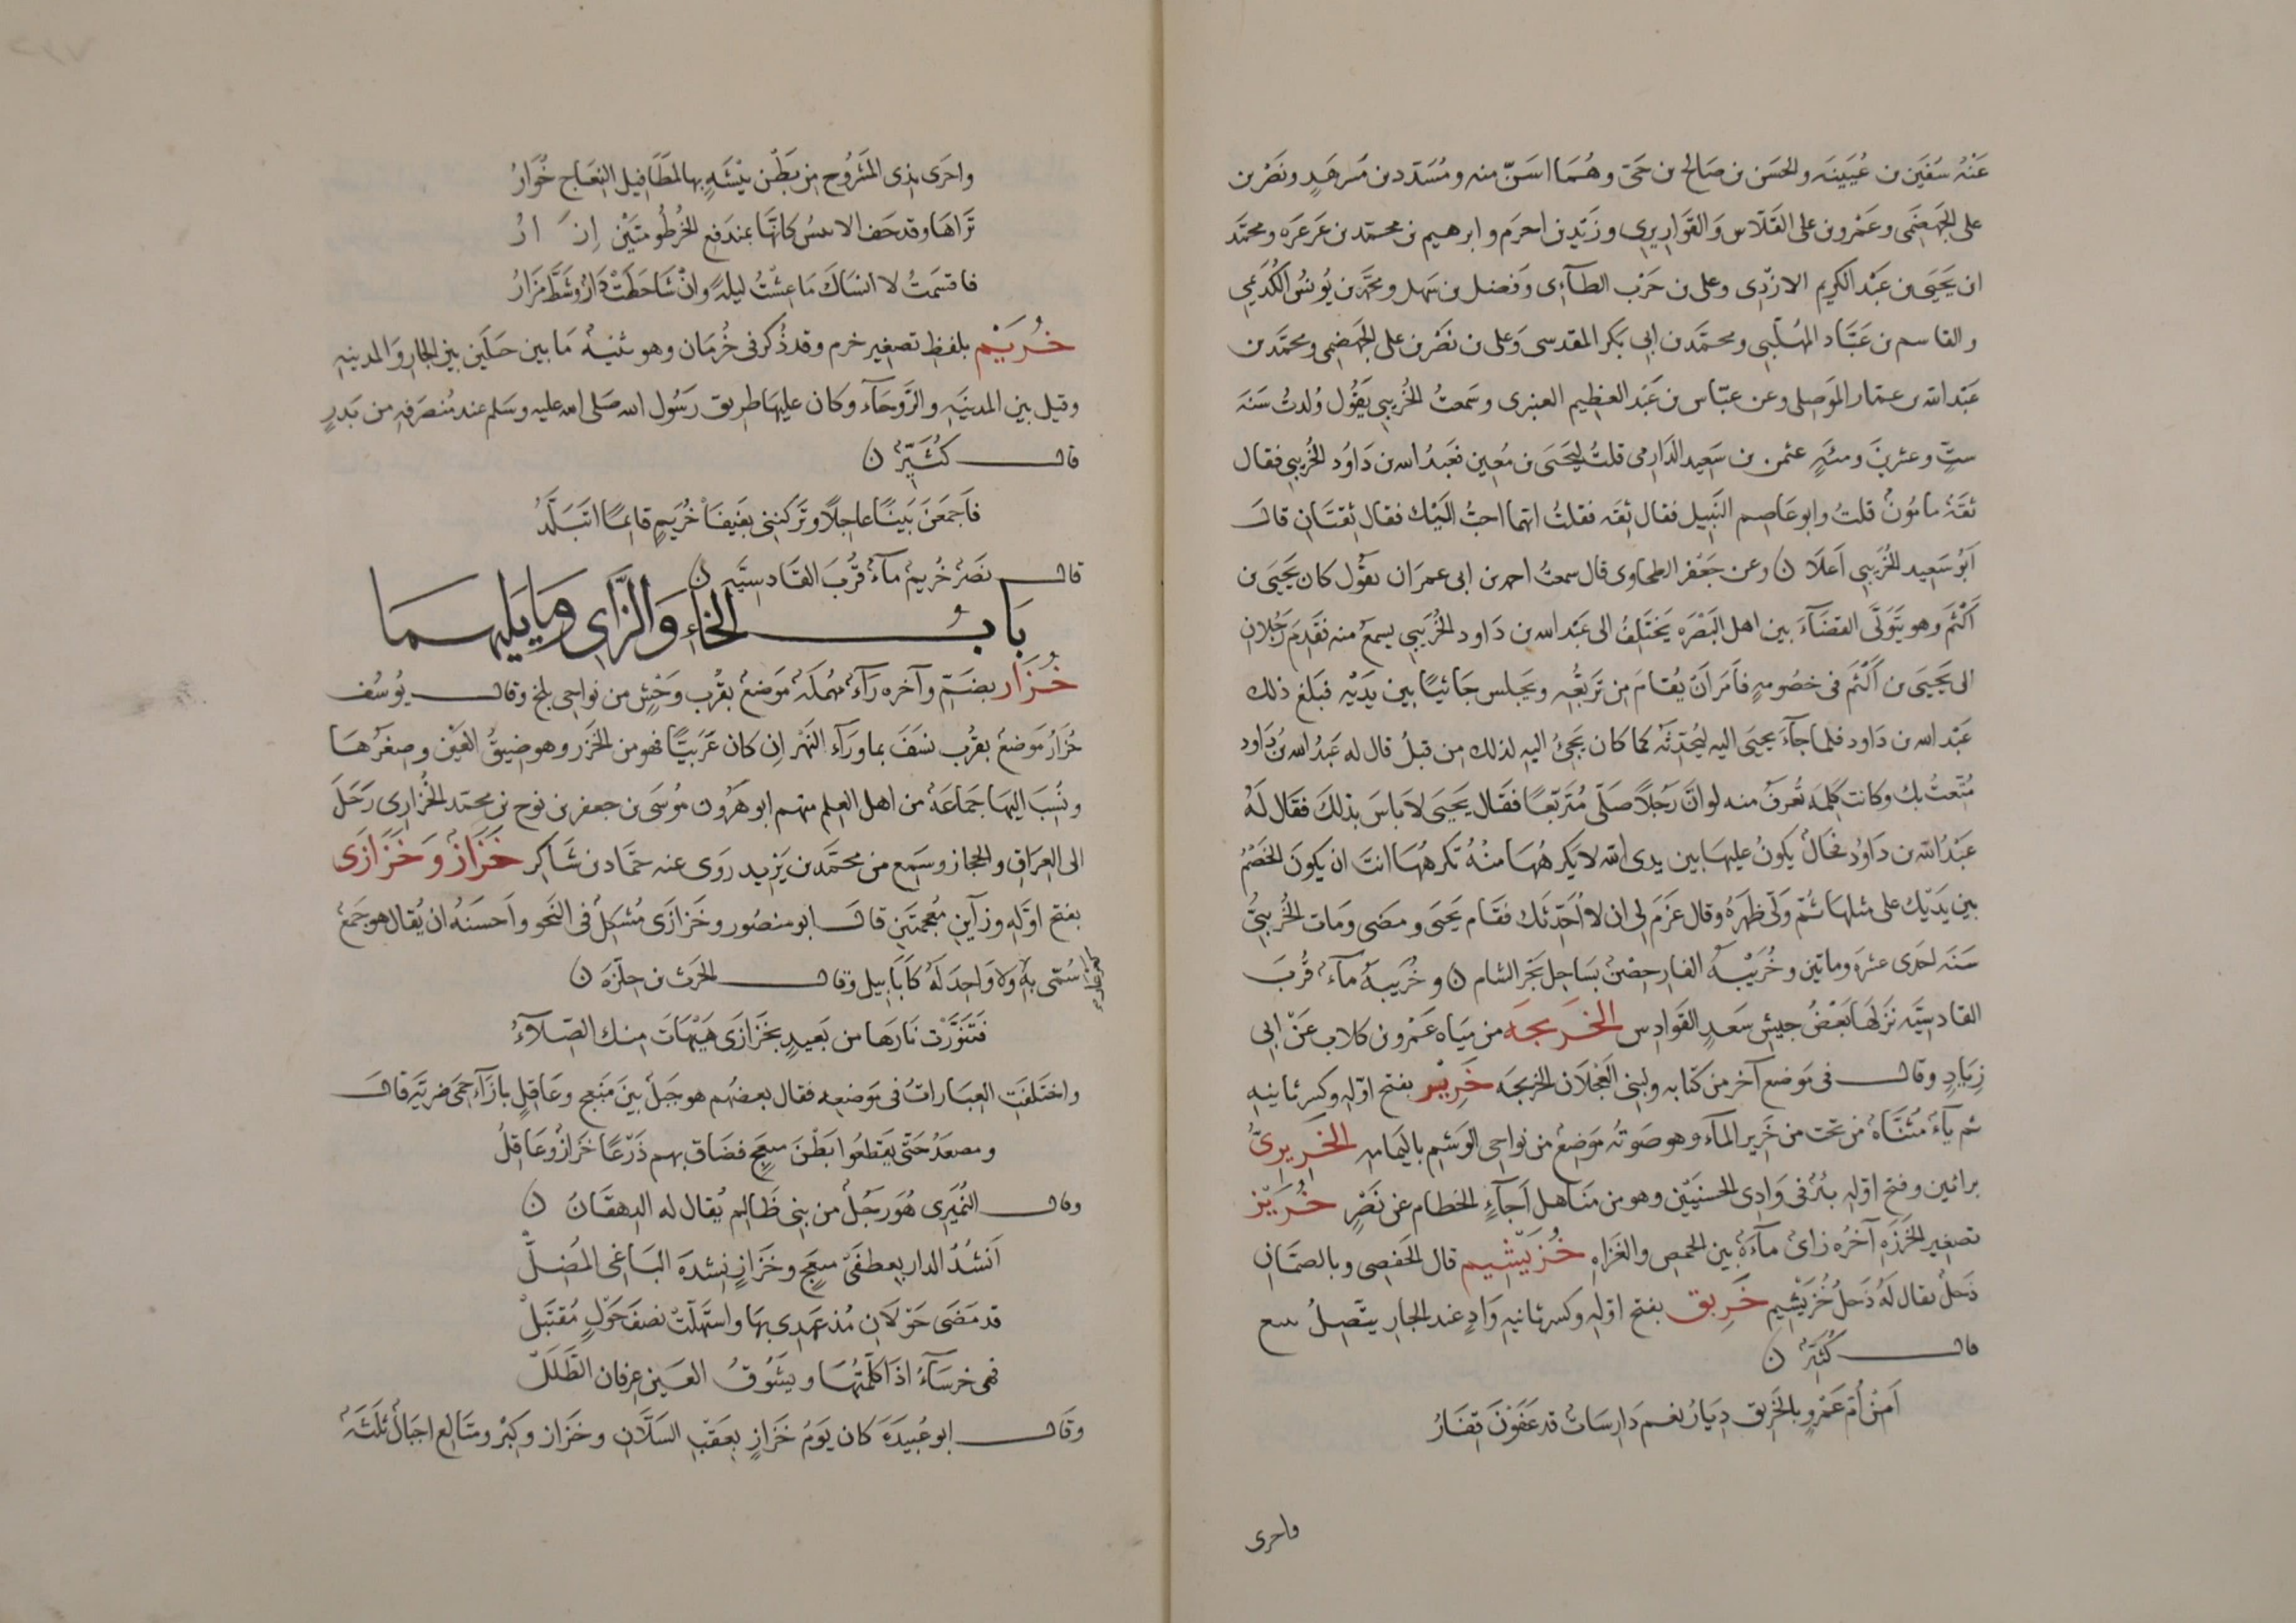 عَنْهُ سُفيَن بن عُيَينَه والحسَن بن صَالح بن حَىّ وهُمَا اسَنّ منه ومُسَدّد بن مُسَرهَدٍ ونَصْر بن
على الجَهضَمى وعَمْرو بن على الفَلّاس وَالقَوَاريرى وزَيْد بن اخرَم وابرهيم بن محمّد بن عَرعَرَه ومحمّد
ابن يَحيَى بن عَبْد الكريم الازْدِى وعلى بن حَرْب الطآءِى وَفَضل بن سَهل ومحمّد بن يُونسُ الكُدَيمى
والقاسم بن عَبَّاد المهُلّبى ومحمَّد بن ابى بَكر المقدسى وَعلى بن نَصْر بن على الجَهضَمى ومحمَّد بن
عَبْد الله بن عمّار المَوَصِلى وعن عبّاس بن عَبْد العَظِيم العنبرى وسَمعتُ الخُريبى يَقُول وُلدتُ سَنَة
ستٍّ وعشرِينَ ومئَةٍ عثمن بن سَعِيد الدَارمى قلتُ ليَحيَى بن مُعِين فعَبدُ الله بن دَاوُد الخُريبى فقال
ثقَةٌ مامُونٌ قلتُ وابو عَاصِم النَبِيل فقال ثِقَه فقلتُ ايّهما احبُّ اليَكَ فقال ثِقتَانِ قالَ
اَبُو سَعِيد الخُرَيبى اَعلَا ن وعن جَعْفر الطحاوى قال سمعتُ احمد بن ابى عمرَان يقول كان يَحيَى بن
اَكْثم وهو يَتَولَّى القضَآءَ بين اهل البَصْرَه يَختَلِفُ الى عَبْد الله بن دَاود الخُرَيبى يسمعُ منه فَتقَدم رَجُلان
الى يَحيَى بن اَكْثم فى خصُومهٍ فاَمَر اَن يُقامَ مِن تَرَبُّعِه ويَجلس جَاثيًا بين يَدَيْه فبَلغ ذلك
عَبْد الله بن دَاود فلما جآءَ يحيَى اليه ليُحَدّثَهُ كما كان يَجىُ اليهِ لذلك مِن قبلُ قال له عَبْدُ الله بنُ دَاود
مُتِّعتُ بك وكانت كلِمَةً تُعرَفُ منه لو انَّ رَجُلاً صَلَّى مُتَرَبّعًا فقَال يَحيَى لا باسَ بذلكَ فقَال لَهُ
عَبْدُ الله بن دَاوُد فحَالٌ يكونُ عليهَا بين يدى الله لا يَكرهُهَا منْهُ تكرهُهَا انتَ ان يكونَ الخصْمُ
بين يَدَيْك على مثلهَا ثُمّ ولّى ظهرَهُ وقال عَزَمَ لى ان لا اُحَدّثَك فقَام يَحيَى ومضى ومَات الخُريبىُّ
سَنَه احَدَى عشرَه وماتين وخُرَيْبَةُ الغار حِصْنٌ بسَاحِل بَحْر الشام ن وخُرَيبَةُ مآءٌ قُربَ
القادسيّه نزَلهَا بَعْضُ جيش سَعد القَوادِس الخَريجَه من ميَاه عَمْرو بن كلاب عَن ابى
زيَادٍ وقال فى مَوضع آخر من كتابه ولبنى العَجْلَان الخريجَه خَرِيْر بفتح اوّلِه وكسر ثانيه
ثم يآءٌ مُثنَّاهٌ من تحت من خَرِير المآء وهو صَوتُه مَوضِعٌ من نواحى الوَشِم باليَمامه الخَرِيرِىُّ
برائين وفتح اوّلِه بئرٌ فى وَادى الحسنَيْن وهو من مَنَاهل اَجآءٍ الخطام عن نَصْرٍ خُرَيْز
تصغِير الخَرَزَه آخرُه زاىٌ مآءَهٌ بين الحمص والعَزاه خُرَيْشِيم قال الحَفصِى وبالصمَّان
دَحلٌ يقال لَهُ دَحلُ خُرَيْشِيم خَرِيق بفتح اوّلِه وكسر ثانيه وَادٍ عند الجار يتَّصِلُ بينبع
قال كُثيّرٌ ن
اَمِنْ اُمّ عَمْروٍ بالخَريق دِيَارُ نعم دَارسَاتٌ قد عَفَوْنَ قِفَارُ
واخرى
واخرَى بذى المَشرُوح من بَطْن بيْشَهٍ بها لمَطَافِيل النِعَاج خُوَارُ
تَرَاهَا وقد خفّ الانيسُ كانّهَا بمندفع الخُرطُومتَيْن اِزَارُ
فاقسَمتُ لا انسَاكَ مَا عِشْتُ ليلةً وانْ شَاحطَتْ دَارٌ وشَطَّ مَزَارُ
خُرَيْم بلفظ تصغِير خرم وقد ذُكر فى خُرمَان وهو ثنيةٌ مَا بين جبلَين بين الجارِ وَالمدينه
وقيل بين المدينَه والرَّوحَآء وكان عليهَا طريق رَسُول الله صَلى الله عليه وسَلم عند مُنصَرفِه من بَدرٍ
قال كُثَيّرٌ ن
فاَجمَعنَ بَينًا عاجلًا وتَركنَنِى بفَيفَا خُرَيمٍ قائمًا اتَبَلَّدُ
قال نصَرٌ خُريمٌ مآءٌ قُربَ القَادسيَّه ن
بَابُ الخَاءِ وَالزَّاى وَمَا يَليهمَا
خُزَار بضَمّ وآخره رَآءٌ مهُمَلَهٌ مَوضعٌ بقرُب وَخْشٍ من نواحى بلخ وقال يُوسُف
خُزَارُ مَوضعٌ بقرُب نسَفَ بماورَآءِ النَهْر اِن كان عَرَبيًّا فهو من الخَزَر وهو ضيقُ العَيْن وصغَرُهَا
ونُسِبَ اليهَا جمَاعَهٌ من اهل العِلم منهم ابو هَرُون مُوسَى بن جعفر بن نوح بن محمّد الخُزارى رَحَلَ
الى العِرَاق والحجاز وسَمِع من محمَّد بن يَزيد روَى عنه حمَّاد بن شَاكر خَزَازُ وَخَزَازَى
بفتح اوّلِه وزآين مُعجمتَين قالَ ابو منصُور وخَزازَى مُشكِلٌ فى النَحو واَحسَنُهُ ان يُقال هو جَمعٌ
سُمّى بهِ ولا وَاحِدَ لَهُ كاَبَابِيل وقال الحَرث بن حِلّزَه ن
فَتَنوَّرتُ نارَها من بَعيدٍ بخَزازَى هَيْهَاتَ مِنك الصِّلآءُ
واختَلفَتِ العِبَاراتُ فى مَوضعِه فقال بعضُهم هو جَبلٌ بَينَ مَنعِج وعَاقلٍ بازآءِ حِمَى ضريَّه قالَ
ومصعدُ حَتّى يَقطعُوا بَطْنَ منعِجٍ فضَاق بهم ذَرْعًا خَزازٌ وعَاقِلُ
وقال النُمَيرِى هُوَ رجُلٌ من بنى ظَالِم يُقال له الدهقَانُ ن
اَنشُدُ الدار بعِطفَىْ منعِجٍ وخَزازٍ نِشدَةَ البَاغى المُضِلّ
قد مَضى حَوْلَانِ مُذ عَهدِى بهَا واستَهَلَّتْ نصفَ حَوْلٍ مُقتَبَلْ
فهى خرسَآءُ اذا كلّمتُهَا ويَشُوقُ العَين عِرفان الطَّلَلّ
وقَالَ ابو عُبيدَه كان يَومُ خَزازٍ بعَقبِ السَلَّانِ وخَزاز وكيْرُ ومتَالع اجبَالٌ ثلثَهٌ